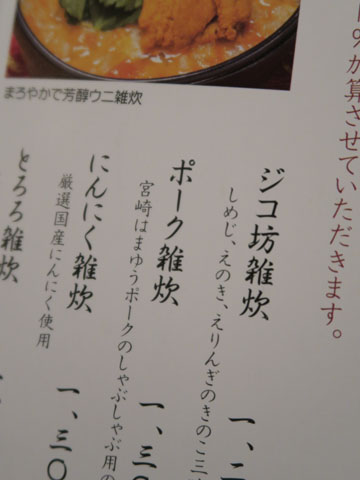 まろやかで芳醇ウニ雑炊
%が算させていただきます。
ジコ坊雑炊
しめじ、えのき、えりんぎのきのこ三
一、二
ポーク雑炊
宮崎はまゆうポークのしゃぶしゃぶ用の
一、三〇
にんにく雑炊
厳選国産にんにく使用
一、三〇
とろろ雑炊